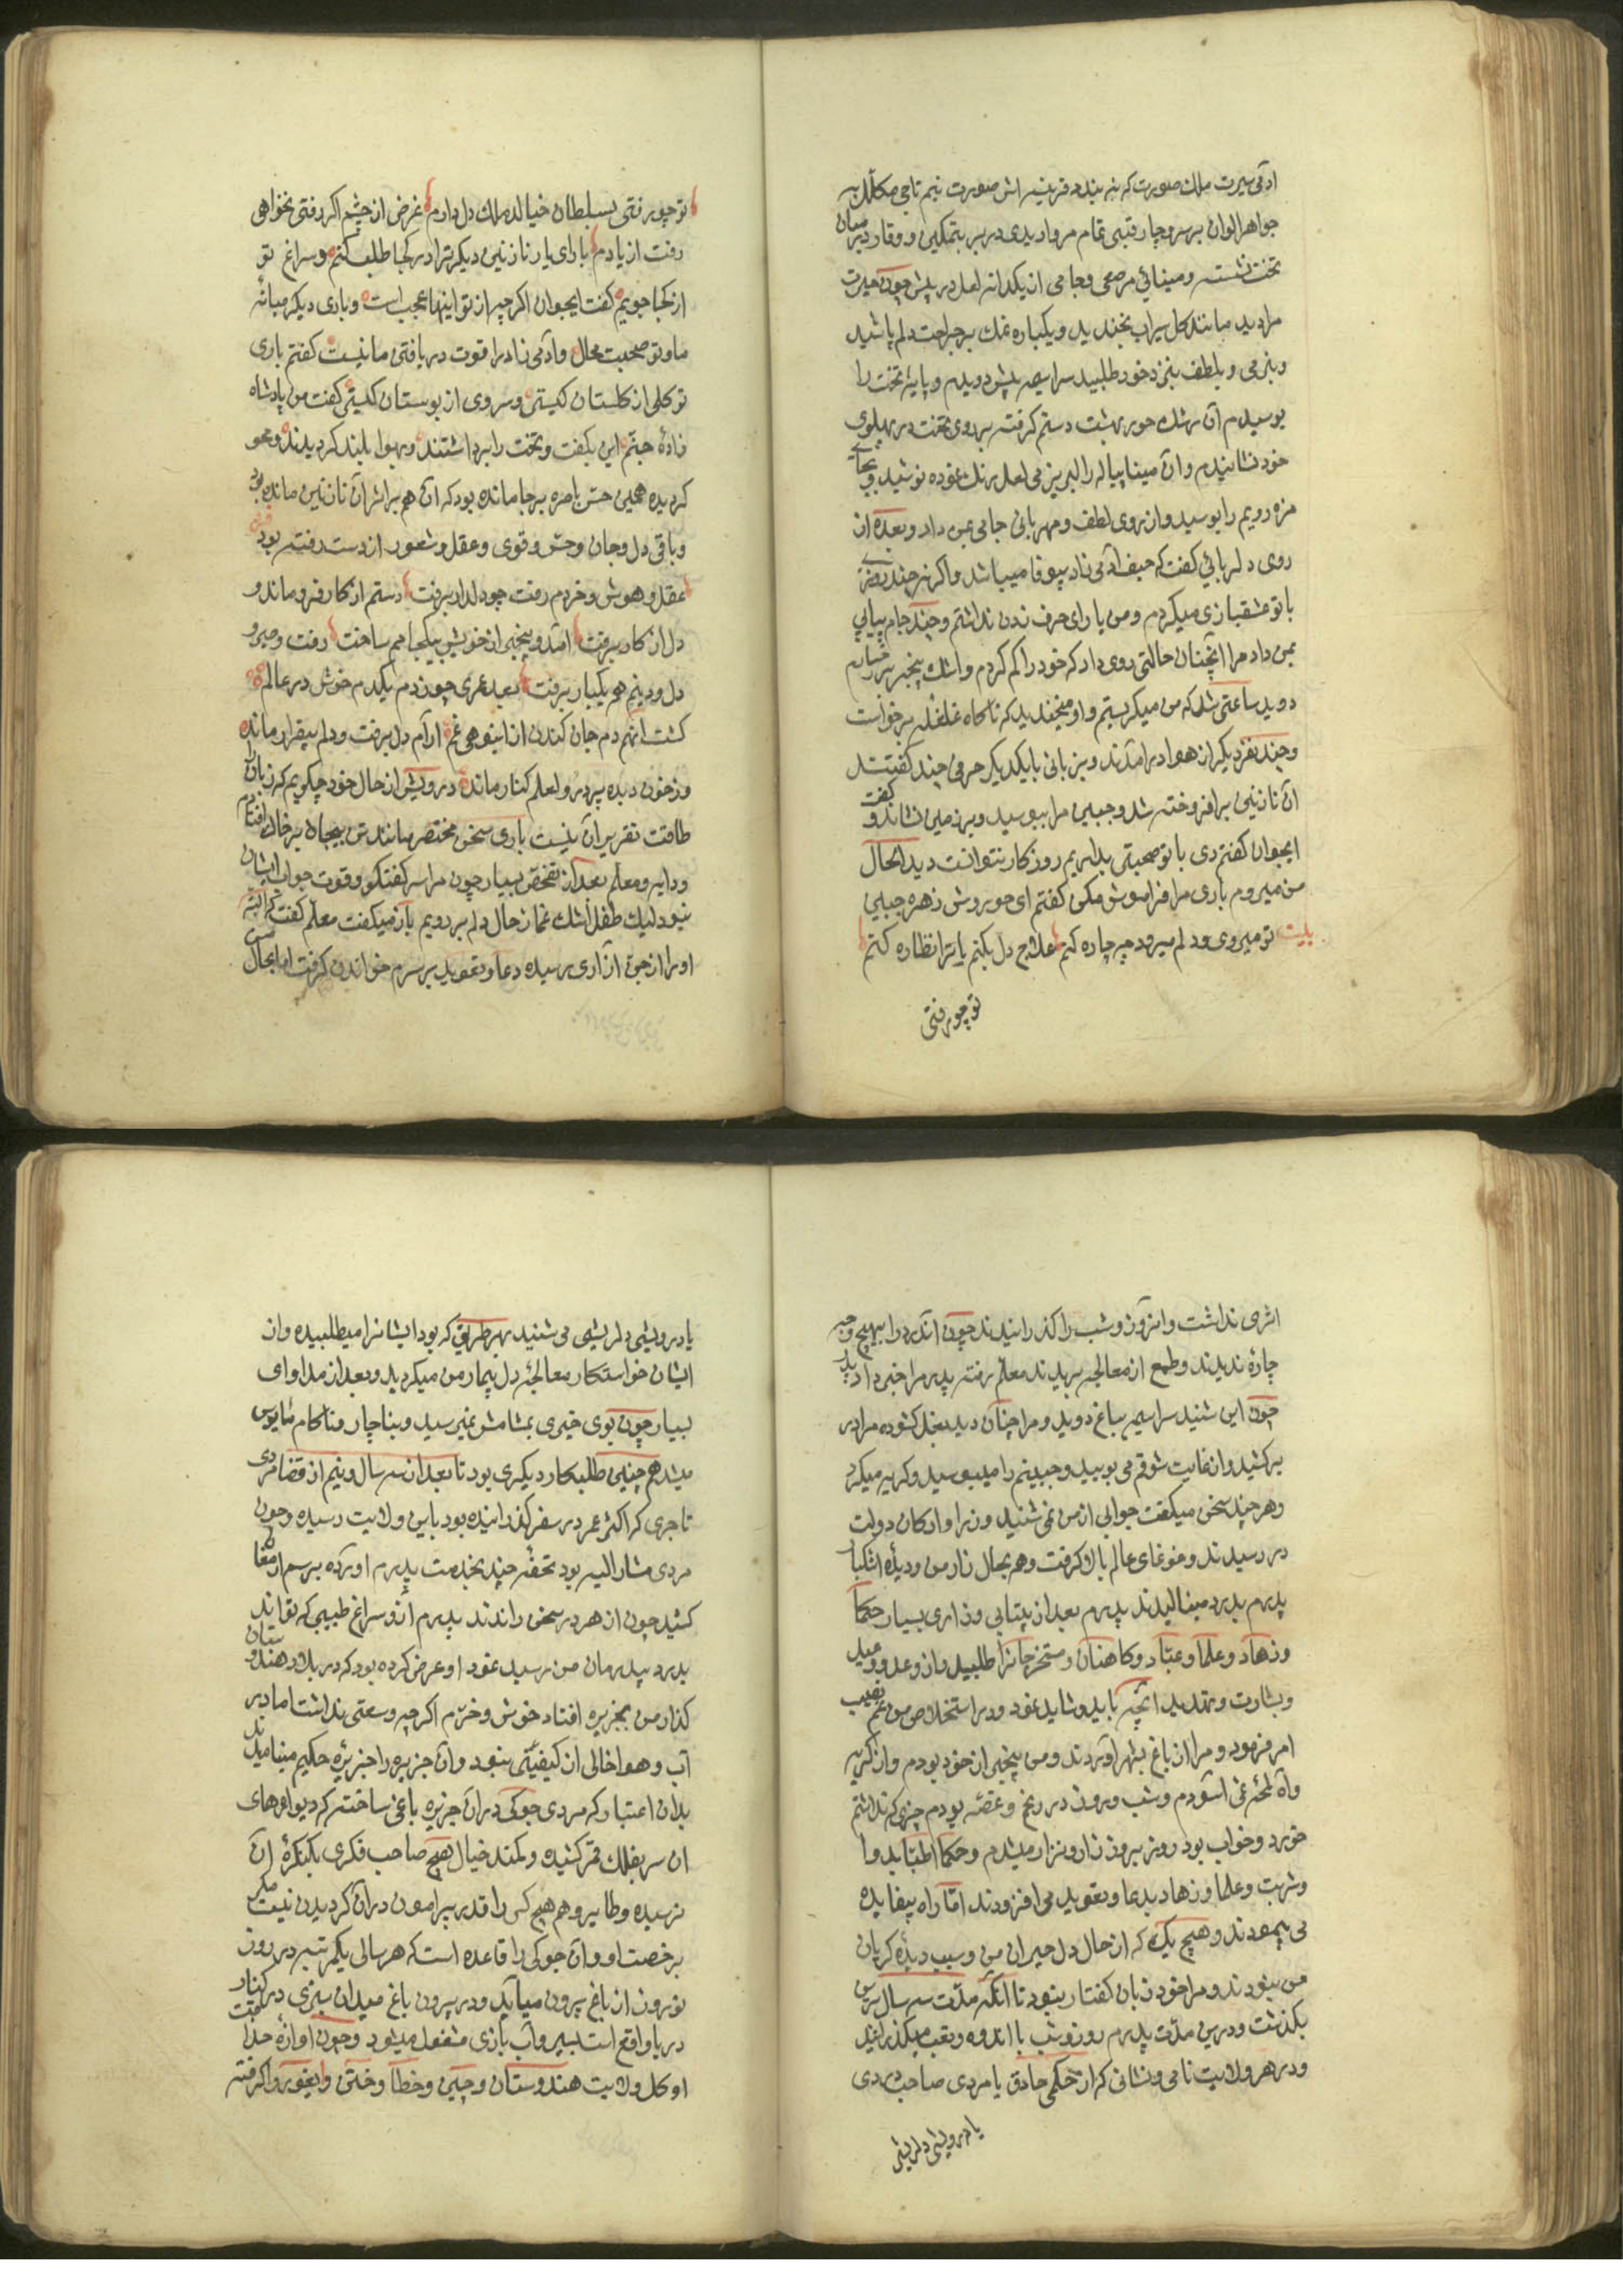 ادمی سیرت ملک صورت که نه بیند قرینه اش صورت نیم تاجی مکلل به
جواهر الوان بر سر و چارقبی تمام مروارید در بر بتمکین و وقار در میان
تخت نشسته و مینائی مرصعی و جامی از یکدانه لعل در پیش چون حیرت
مرا دید مانند کل سیراب بخندید و یکباره نمک بر جراحت دلم پاشید
و بنرمی و بلطف بنزد خود طلبید سراسیمه پیش دویدم و پایه تخت را
بوسیدم آن رشک حور بهشت دستم کرفته بر روی تخت در پهلوی
خود نشانیدم و آن مینا پیاله را لبریز می لعل رنک نموده نوشید و بجای
مزه رویم را بوسید و از روی لطف و مهربانی جامی بمن داد و بعده از
روی دلربائی کفت که حیف ادمی زاد بیوفا میباشد و اکر نه چند روزی
با تو عشقبازی میکردم و من یارای حرف زدن نداشتم و چند جام پیاپی
بمن داد مرا انچنان حالتی روی داد که خود را کم کردم و اشک بیخبر بر رخسارم
دوید ساعتی شد که من میکریستم و او میخندید که ناکاه غلغله برخواست
و چند نفر دیکر از هوا درامدند و بزبانی با یکدیکر حرفی چند کفتند
ان نازنین برافروخته شد و جبین مرا ببوسید و بر زمین نشاند و کفت
ایجوان کفتم دمی با تو صحبتی بداریم روزکار نتوانست دید الحال
من میروم باری مرا فراموش مکن کفتم ای حوروش زهره جبین
بیت تو میروی و دلم میرود چه چاره کنم علاج دل بکنم یا ترا نظاره کنم
تو چو رفتی
تو چو رفتی بسلطان خیالد ملک دل دارم غرض از چشم اکر رفتی نخواهی
رفت از یادم بارای یار نازنین دیکر ترا در کجا طلب کنم و سراغ تو
از کجا جویم کفت ایجوان اکرچه از تو اینها عجب است و باری دیکر میانه
ما و تو صحبت محال و ادمی زاد را قوت دریافتن ما نیست کفتم باری
تو کلی از کلستان کیستی و سروی از بوستان کیستی کفت من پادشاه
زادهٔ جنم این بکفت و تخت را برداشتند و بهوا بلند کردیدند و محو
کردیده همین حس باصره بر جا مانده بود که آن هم بر اثر آن نازنین مانده بود
و باقی دل و جان و حس و قوی و عقل و شعور از دست رفته بود
عقل و هوش و خردم رفت چو دلدار برفت دستم از کار فرو ماند و
دل از کار برفت امد و بیخبر از خویش بیکجا هم ساخت رفت و صبر و
دل و دینم هم یکبار برفت بعد عمری چو زدم یکدم خوش در عالم
کشت انهم دم جان کندن از انبوهی غم ارام دل برفت و دلم بیقرار مانده
وز خون دیده پر در و لعلم کنار مانده درویش از حال خود چکویم که زبان را
طاقت تقریر آن نیست باری سخن مختصر مانند تن بیجان بر خاک افتادم
و دایه و معلم بعد از تفحص بسیار چون مرا سر کفتکو و قوت جواب ایشان
نبود لیک طفل اشک غماز حال دلم بر رویم باز میکفت معلم کفت که البته
او را از جن آزاری رسیده دعا و تعویذ بر سرم خواندن کرفت اما بحال من
اثری نداشت و انروز و شب را کذرانیدند چون آندرد را بهیچ وجه
چارهٔ ندیدند و طمع از معالجه بریدند معلم رفته پدر مرا خبر داد پدر
چون این شنید سراسیمه بباغ دوید و مرا چنان دید بغل کشوده مرا در
بر کشید و از غایت شوقم می بویید و جبینم را میبوسید و کریه میکرد
و هر چند سخن میکفت جوابی از من نمی شنید وزرا و ارکان دولت
در رسیدند و غوغای عالم بالا کرفت و هم بحال زار من و دیدهٔ اشکبار
پدرم بدرد مینالیدند پدرم بعد از بیتابی و زاری بسیار حکما
و زهاد و علما و عباد و کاهنان و مستخرجانرا طلبید و از وعد و وعید
و بشارت و تهدید انچه باید و شاید نمود و در استخلاص من غم نصیب
امر فرمود و مرا از باغ بشهر اوردند و من بیخبر از خود بودم و از کریه
و آه لمحهٔ نمی اسودم و شب و روز در رنج و غصه بودم چیزی که نداشتم
خورد و خواب بود روز بروز زار و نزار میشدم و حکما اطبا بدوا
و شربت و علما و زهاد بدعا و تعویذ می افزودند اما راه بیفایده
می پیمودند و هیچ یک که از حال دل حیران من و سبب دیدهٔ کریان
من نبودند و مرا خود زبان کفتار نبود تا انکه مدت سه سال برین
بکذشت و درین مدت پدرم روز و شب با اندوه و تعب میکذرانید
و در هر ولایت نامی و نشانی که از حکمی حاذق یا مردی صاحبدردی
یا درویشی دلریشی
یا درویشی دلریشی می شنید بهر طریق که بود ایشانرا میطلبیده و از
ایشان خواستکار معالجهٔ دل بیمار من میکردید و بعد از مداوای
بسیار چون بوی خیری بمشامش نمیرسید و بناچار و ناکام مایوس
میشد هم چنین طلبکار دیکری بود تا بعد از سه سال و نیم از قضا مردی
تاجری که اکثر عمر در سفر کذرانیده بود باین ولایت رسیده و چون
مردی مشار الیه بود تحفهٔ چند بخدمت پدرم اورده برسم ارمغان
کشید چون از هر در سخن راندند پدرم ازو سراغ طبیبی که تواند
بدرد بیدرمان من رسید نمود او عرض کرده بود که در بلاد هندوستان
کذار من بجزیره افتاد خوش و خرم اکرچه وسعتی نداشت اما در
آب و هوا خالی از کیفیتی نبود و آن جزیره را جزیرهٔ حکیم مینامیدند
بدان اعتبار که مردی جوکی در آن جزیره باغی ساخته که دیوارهای
ان سر بفلک قمر کشیده و کمند خیال هیچ صاحب فکری بکنکرهٔ ان
نرسیده و طایر وهم هیچ کس را قدر پیرامون در آن کردیدن نیست مکر
برخصت او و آن جوکی را قاعده است که هر سالی یکمرتبه در روز
نوروز از باغ بیرون میآید و در بیرون باغ میدان سبزی در کنار
دریا واقع است بسیر و آب بازی مشغول میشود و چون اوازهٔ حذاقت
او کل ولایت هندوستان و چین و خطا و ختن و ایغور را کرفته